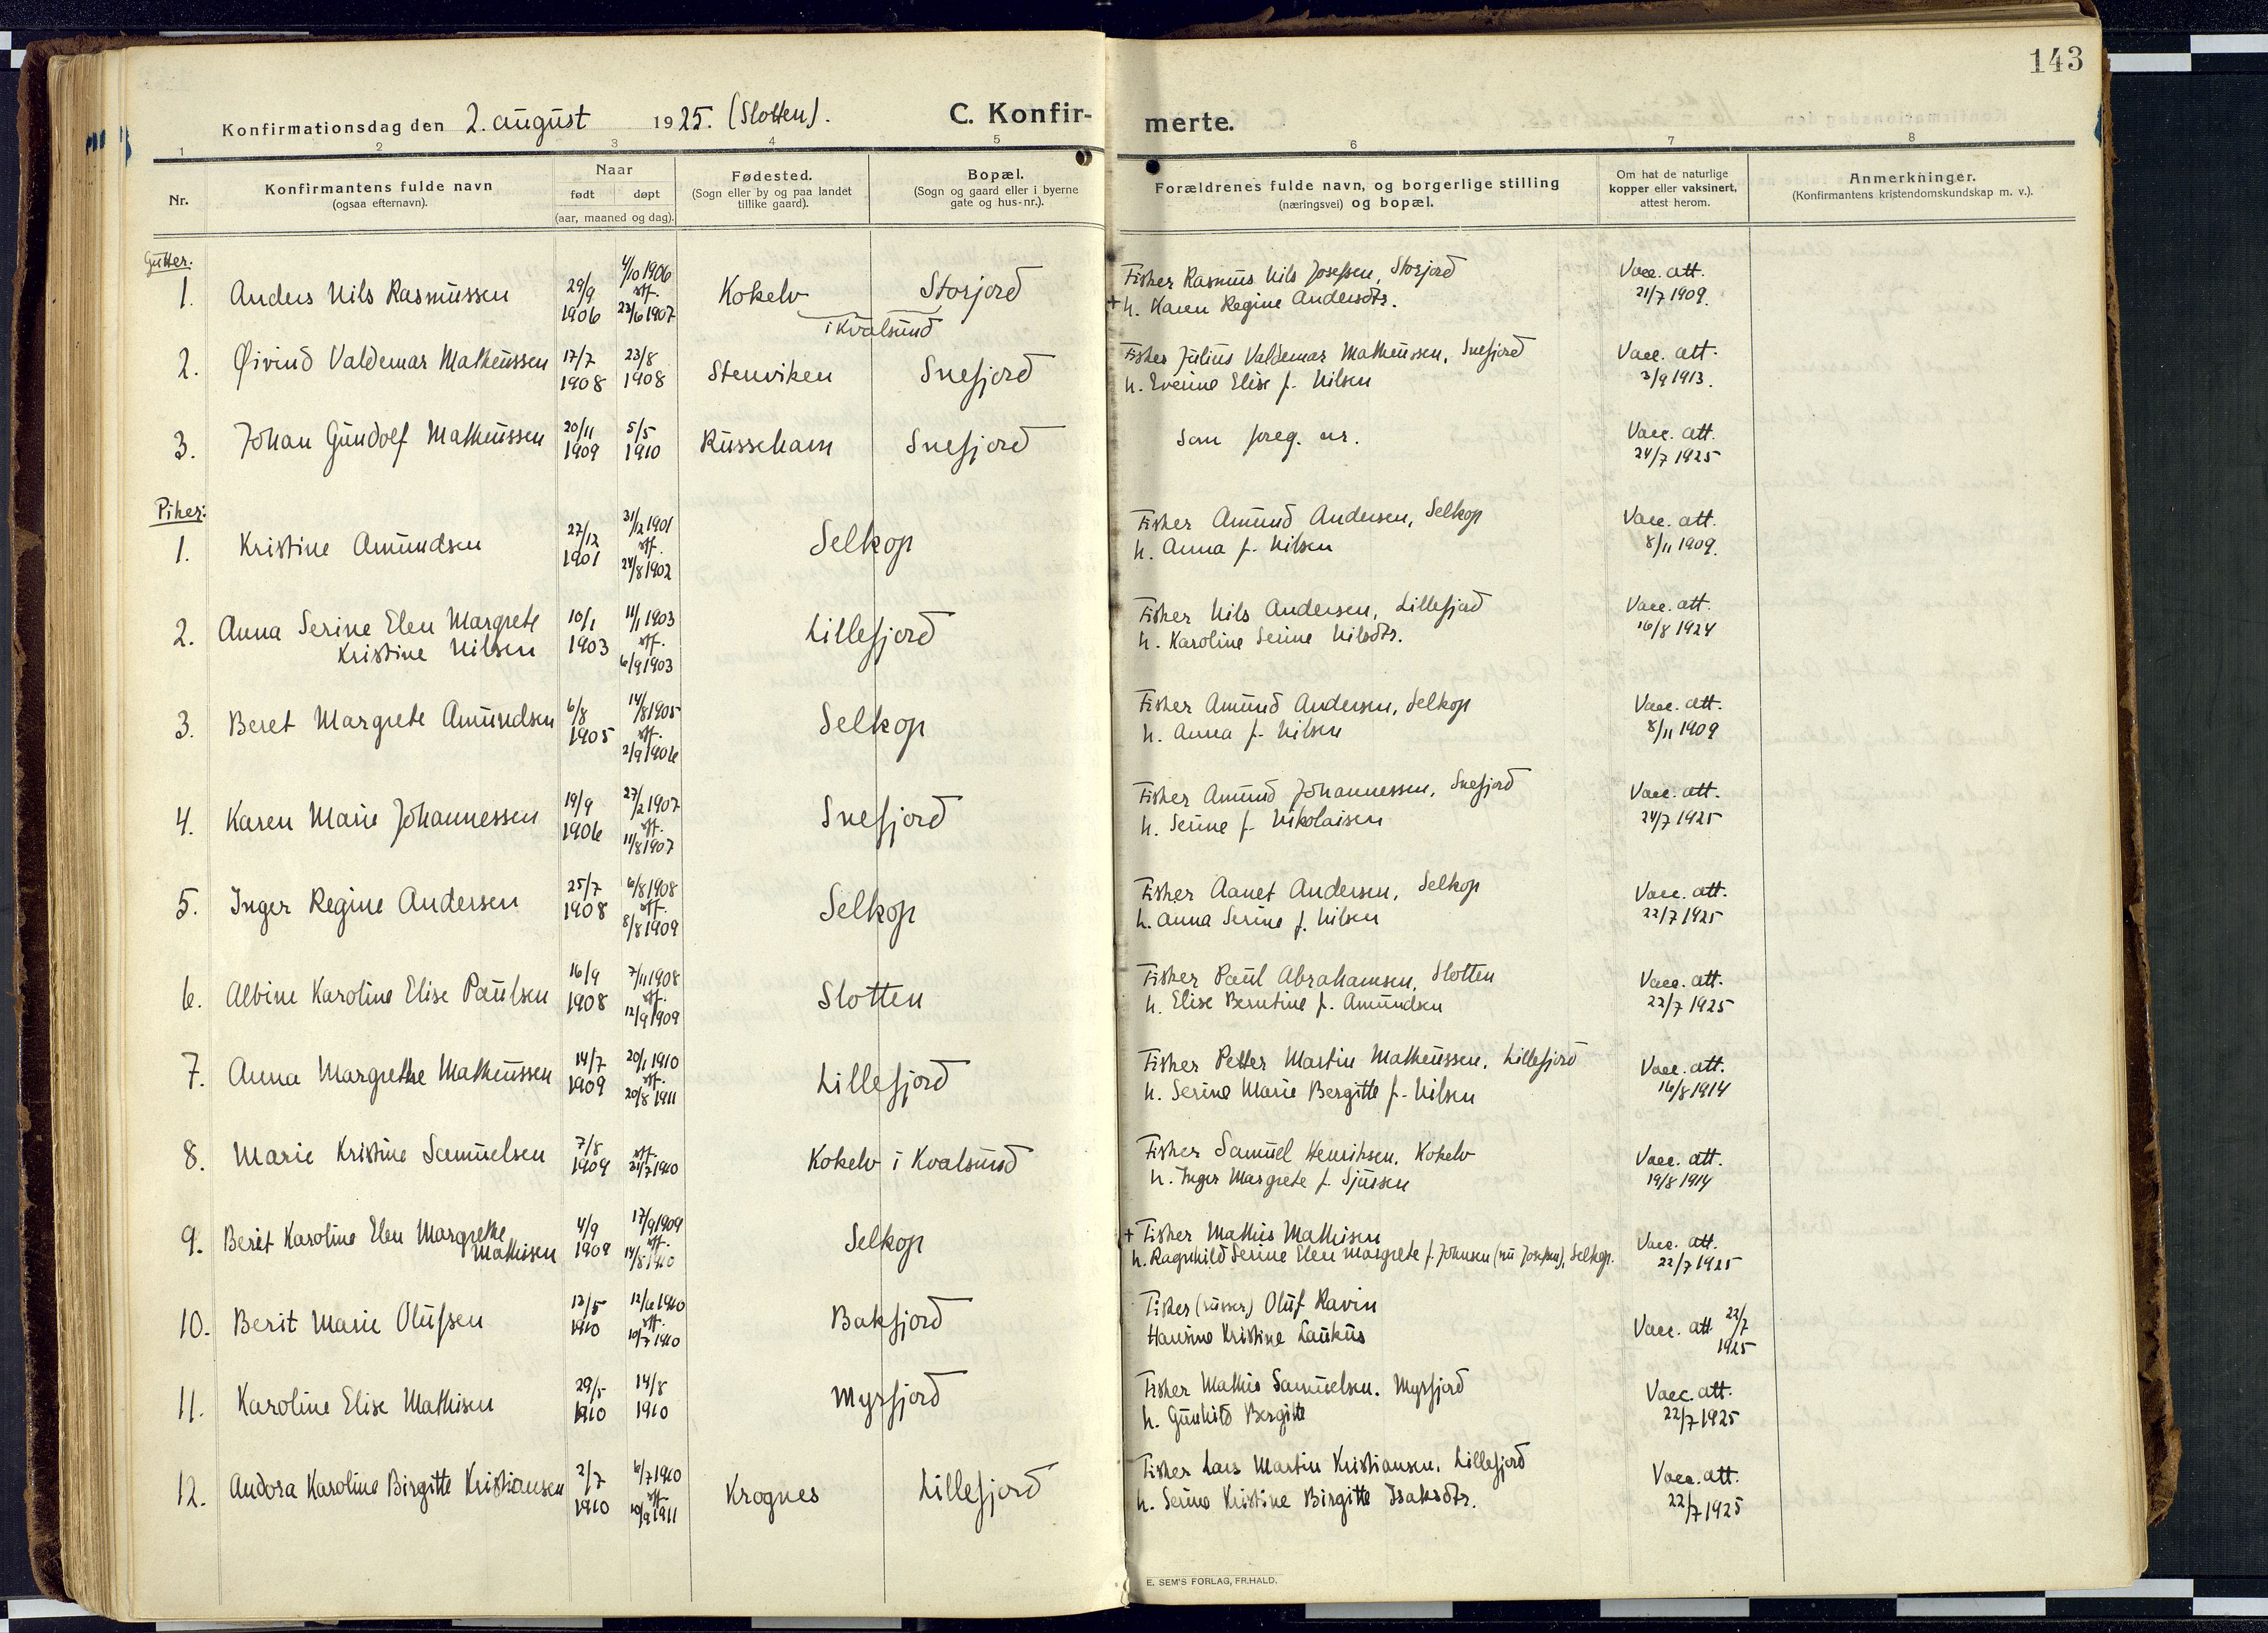 143
Konfirmationsdag den 2. august 1925. (Slotten).
C. Konfir-
merte.
1 2 3 4 5 6 7 8
Nr.
Konfirmantens fulde navn
(ogsaa efternavn).
Naar
født døpt
(aar, maaned og dag).
Fødested.
(Sogn eller by og paa landet
tillike gaard).
Bopæl.
(Sogn og gaard eller i byerne
gate og hus-nr.).
Forældrenes fulde navn, og borgerlige stilling
(næringsvei) og bopæl.
Om hat de naturlige
kopper eller vaksinert,
attest herom.
Anmerkninger.
(Konfirmantens kristendomskundskap m. v.).
Gutter.
1. Anders Nils Rasmussen 29/9 1906 4/10 1906 stf. 23/6 1907 Kokelv Storjord
i Kvalsund
Fisker Rasmus Nils Josefsen, Storjord
+ h. Karen Regine Andersdtr.
Vacc. att.
21/7 1909.
2. Øivind Valdemar Matheussen 17/7 1908 23/8 1908 Stenviken Snefjord
Fisker Julius Valdemar Matheussen, Snefjord
h. Evenine Elise f. Nilsen
Vacc. att.
3/9 1913.
3. Johan Gundolf Matheussen 20/11 1909 5/5 1910 Russehavn Snefjord
Som foreg. nr.
Vacc. att.
24/7 1925
Piker:
1. Kristine Amundsen 27/12 1901 31/12 1901 stf. 24/8 1902 Selkop
Fisker Amund Andersen, Selkop
h. Anna f. Nilsen
Vacc. att.
8/11 1909.
2. Anna Serine Elen Margrete
Kristine Nilsen 10/1 1903 11/1 1903 stf. 6/9 1903 Lillefjord
Fisker Nils Andersen, Lillefjord
h. Karoline Serine Nilsdtr.
Vacc. att.
16/8 1924
3. Beret Margrete Amundsen 6/8 1905 14/8 1905 stf. 2/9 1906 Selkop
Fisker Amund Andersen, Selkop
h. Anna f. Nilsen
Vacc. att.
8/11 1909
4. Karen Marie Johannessen 19/9 1906 27/2 1907 stf. 11/8 1907 Snefjord
Fisker Amund Johannessen, Snefjord
h. Serine f. Nikolaisen
Vacc. att.
24/7 1925
5. Inger Regine Andersen 25/7 1908 6/8 1908 stf. 8/8 1909 Selkop
Fisker Aanet Andersen, Selkop
h. Anna Serine f. Nilsen
Vacc. att.
22/7 1925
6. Albine Karoline Elise Paulsen 16/9 1908 7/11 1908 stf. 12/9 1909 Slotten
Fisker Paul Abrahamsen, Slotten
h. Elise Berntine f. Amundsen
Vacc. att.
22/7 1925
7. Anna Margrethe Matheussen 14/7 1909 20/1 1910 stf. 20/8 1911 Lillefjord
Fisker Petter Martin Matheussen, Lillefjord
h. Serine Marie Bergitte f. Nilsen
Vacc. att.
16/8 1914
8. Marie Kristine Samuelsen 7/8 1909 stf. 24/7 1910 Kokelv i Kvalsund
Fisker Samuel Henriksen, Kokelv
h. Inger Margrete f. Sjursen
Vacc. att.
19/8 1914
9. Berit Karoline Elen Margrethe
Mathisen 4/9 1909 17/9 1909 stf. 14/8 1910 Selkop
+ Fisker Mathis Mathisen
h. Ragnhild Serine Elen Margrete f. Johnsen (nu Josefsen), Selkop.
Vacc. att.
22/7 1925
10. Berit Marie Olufsen 12/5 1910 12/6 1910 stf. 10/7 1910 Bakfjord
Fisker (russer) Oluf Ravin
Hansine Kristine Laukus
Vacc. att 22/7
1925
11. Karoline Elise Mathisen 29/5 1910 14/8 1910 Myrfjord
Fisker Mathis Samuelsen. Myrfjord
h. Gunhild Bergitte
Vacc. att.
22/7 1925
12. Andora Karoline Birgitte Kristiansen 2/7 1910 6/7 1910 stf. 10/9 1911 Krognes Lillefjord
Fisker Lars Martin Kristiansen. Lillefjord
h. Serine Kristine Birgitte Isaksdtr.
Vacc. att.
22/7 1925
E. SEM'S FORLAG, FR.HALD.